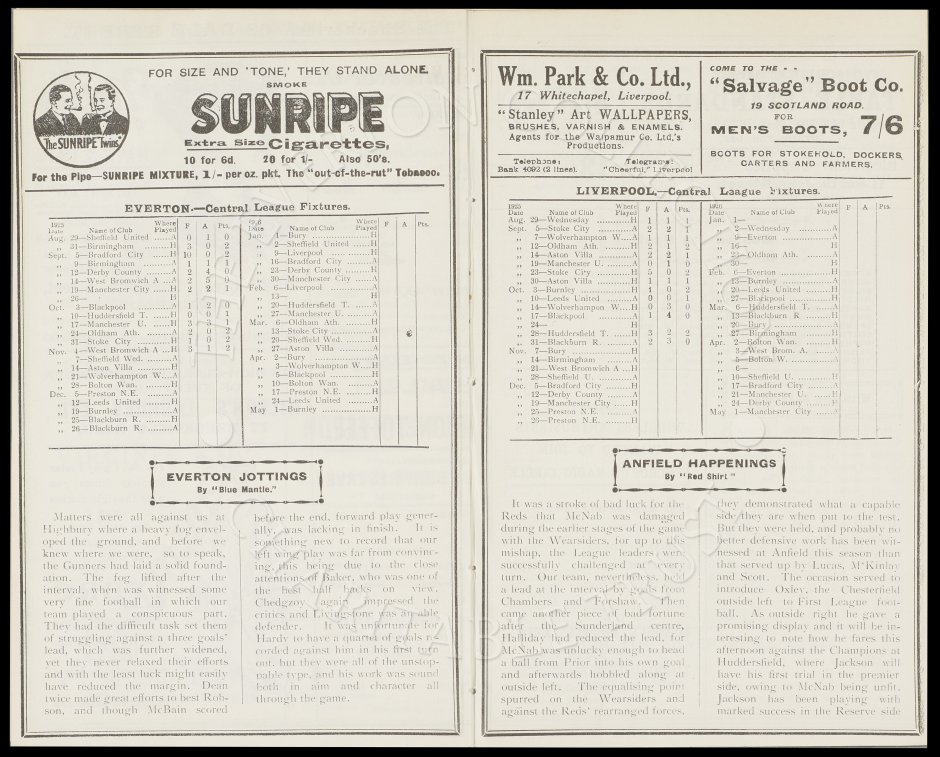 FOR SIZE AND 'TONE,' THEY STAND ALONE.
SMOKE
SUNRIPE
Extra Size Cigarettes,
10 for 6d. 20 for 1/- Also 50's.
For the Pipe—SUNRIPE MIXTURE, 1/- per oz. pkt. The "out-of-the-rut" Tobacco.
The SUNRIPE Twins
EVERTON.—Central League Fixtures.
1925 Date Name of Club Where Played F A Pts.
Aug. 29—Sheffield United A 0 1 0
„ 31—Birmingham H 3 0 2
Sept. 5—Bradford City H 10 0 2
„ 9—Birmingham A 1 1 1
„ 12—Derby County A 2 4 0
„ 14—West Bromwich A A 2 5 0
„ 19—Manchester City H 2 2 1
„ 26— H
Oct. 3—Blackpool A 1 2 0
„ 10—Huddersfield T. H 0 0 1
„ 17—Manchester U. H 3 3 1
„ 24—Oldham Ath. A 2 0 2
„ 31—Stoke City H 1 0 2
Nov. 4—West Bromwich A H 3 1 2
„ 7—Sheffield Wed. A
„ 14—Aston Villa H
„ 21—Wolverhampton W. A
„ 28—Bolton Wan. H
Dec. 5—Preston N.E. A
„ 12—Leeds United H
„ 19—Burnley A
„ 25—Blackburn R. H
„ 26—Blackburn R. A
Date Name of Club Where Played F A Pts.
Jan. 1—Bury H
„ 2—Sheffield United H
„ 9—Liverpool H
„ 16—Bradford City A
„ 23—Derby County H
„ 30—Manchester City A
Feb. 6—Liverpool A
„ 13— H
„ 20—Huddersfield T. A
„ 27—Manchester U. A
Mar. 6—Oldham Ath. H
„ 13—Stoke City A
„ 20—Sheffield Wed. H
„ 27—Aston Villa A
Apr. 2—Bury A
„ 3—Wolverhampton W. H
„ 5—Blackpool H
„ 10—Bolton Wan. A
„ 17—Preston N.E. H
„ 24—Leeds United A
May 1—Burnley H
EVERTON JOTTINGS
By "Blue Mantle."
Matters were all against us at
Highbury where a heavy fog envel-
oped the ground, and before we
knew where we were, so to speak,
the Gunners had laid a solid found-
ation. The fog lifted after the
interval, when was witnessed some
very fine football in which our
team played a conspicuous part.
They had the difficult task set them
of struggling against a three goals'
lead, which was further widened,
yet they never relaxed their efforts
and with the least luck might easily
have reduced the margin. Dean
twice made great efforts to best Rob-
son, and though McBain scored
before the end, forward play gener-
ally, was lacking in finish. It is
something new to record that our
left wing play was far from convinc-
ing, this being due to the close
attentions of Baker, who was one of
the best half backs on view.
Chedgzoy again impressed the
critics and Livingstone was an able
defender. It was unfortunate for
Hardy to have a quartet of goals re-
corded against him in his first two
out, but they were all of the unstop-
pable type, and his work was sound
both in aim and character all
through the game.
Wm. Park & Co. Ltd.,
17 Whitechapel, Liverpool.
"Stanley" Art WALLPAPERS,
BRUSHES, VARNISH & ENAMELS.
Agents for the Walpamur Co. Ltd.'s
Productions.
Telephone: Bank 4092 (2 lines).
Telegrams: "Cheerful," Liverpool
COME TO THE - -
"Salvage" Boot Co.
19 SCOTLAND ROAD.
FOR
MEN'S BOOTS, 7/6
BOOTS FOR STOKEHOLD, DOCKERS,
CARTERS AND FARMERS.
LIVERPOOL.—Central League Fixtures.
1925 Date Name of Club Where Played F A Pts.
Aug. 29—Wednesday H 1 1 1
Sept. 5—Stoke City A 2 2 1
„ 7—Wolverhampton W. A 1 1 1
„ 12—Oldham Ath. H 2 1 2
„ 14—Aston Villa A 2 2 1
„ 19—Manchester U. A 0 1 0
„ 23—Stoke City H 5 0 2
„ 30—Aston Villa H 1 1 1
Oct. 3—Burnley H 4 0 2
„ 10—Leeds United A 0 0 1
„ 14—Wolverhampton W. H 0 3 0
„ 17—Blackpool A 1 4 0
„ 24— H
„ 28—Huddersfield T. H 3 2 2
„ 31—Blackburn R. A 2 3 0
Nov. 7—Bury H
„ 14—Birmingham A
„ 21—West Bromwich A H
„ 28—Sheffield U. A
Dec. 5—Bradford City H
„ 12—Derby County A
„ 19—Manchester City H
„ 25—Preston N.E. A
„ 26—Preston N.E. H
1926 Date Name of Club Where Played F A Pts.
Jan. 1—
„ 2—Wednesday A
„ 9—Everton A
„ 16—
„ 23—Oldham Ath. A
„ 30—
Feb. 6—Everton H
„ 13—Burnley A
„ 20—Leeds United H
„ 27—Blackpool H
Mar. 6—Huddersfield T. A
„ 13—Blackburn R. H
„ 20—Bury A
„ 27—Birmingham H
Apr. 2—Bolton Wan. H
„ 3—West Brom. A. A
„ 5—Bolton W. A
„ 6—
„ 10—Sheffield U. H
„ 17—Bradford City A
„ 21—Manchester U. H
„ 24—Derby County H
May 1—Manchester City A
ANFIELD HAPPENINGS
By "Red Shirt"
It was a stroke of bad luck for the
Reds that McNab was damaged
during the earlier stages of the game
with the Wearsiders, for up to this
mishap, the League leaders were
successfully challenged at every
turn. Our team, nevertheless, held
a lead at the interval by goals from
Chambers and Forshaw. Then
came another piece of bad fortune
after the Sunderland centre,
Halliday had reduced the lead, for
McNab was unlucky enough to head
a ball from Prior into his own goal
and afterwards hobbled along at
outside left. The equalising point
spurred on the Wearsiders and
against the Reds' rearranged forces,
they demonstrated what a capable
side they are when put to the test.
But they were held, and probably no
better defensive work has been wit-
nessed at Anfield this season than
that served up by Lucas, McKinlay
and Scott. The occasion served to
introduce Oxley, the Chesterfield
outside left to First League foot-
ball. As outside right he gave a
promising display and it will be in-
teresting to note how he fares this
afternoon against the Champions at
Huddersfield, where Jackson will
have his first trial in the premier
side, owing to McNab being unfit.
Jackson has been playing with
marked success in the Reserve side